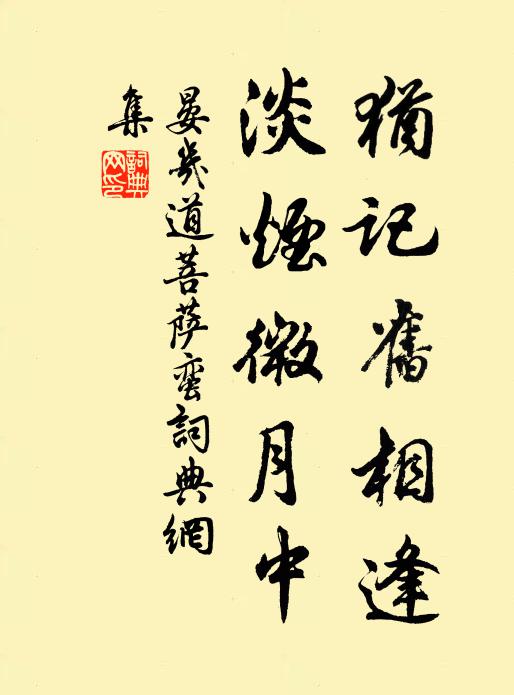 猶記舊相逢
淡煙微月中
晏幾道菩薩蠻詞典網
集
詞典網印